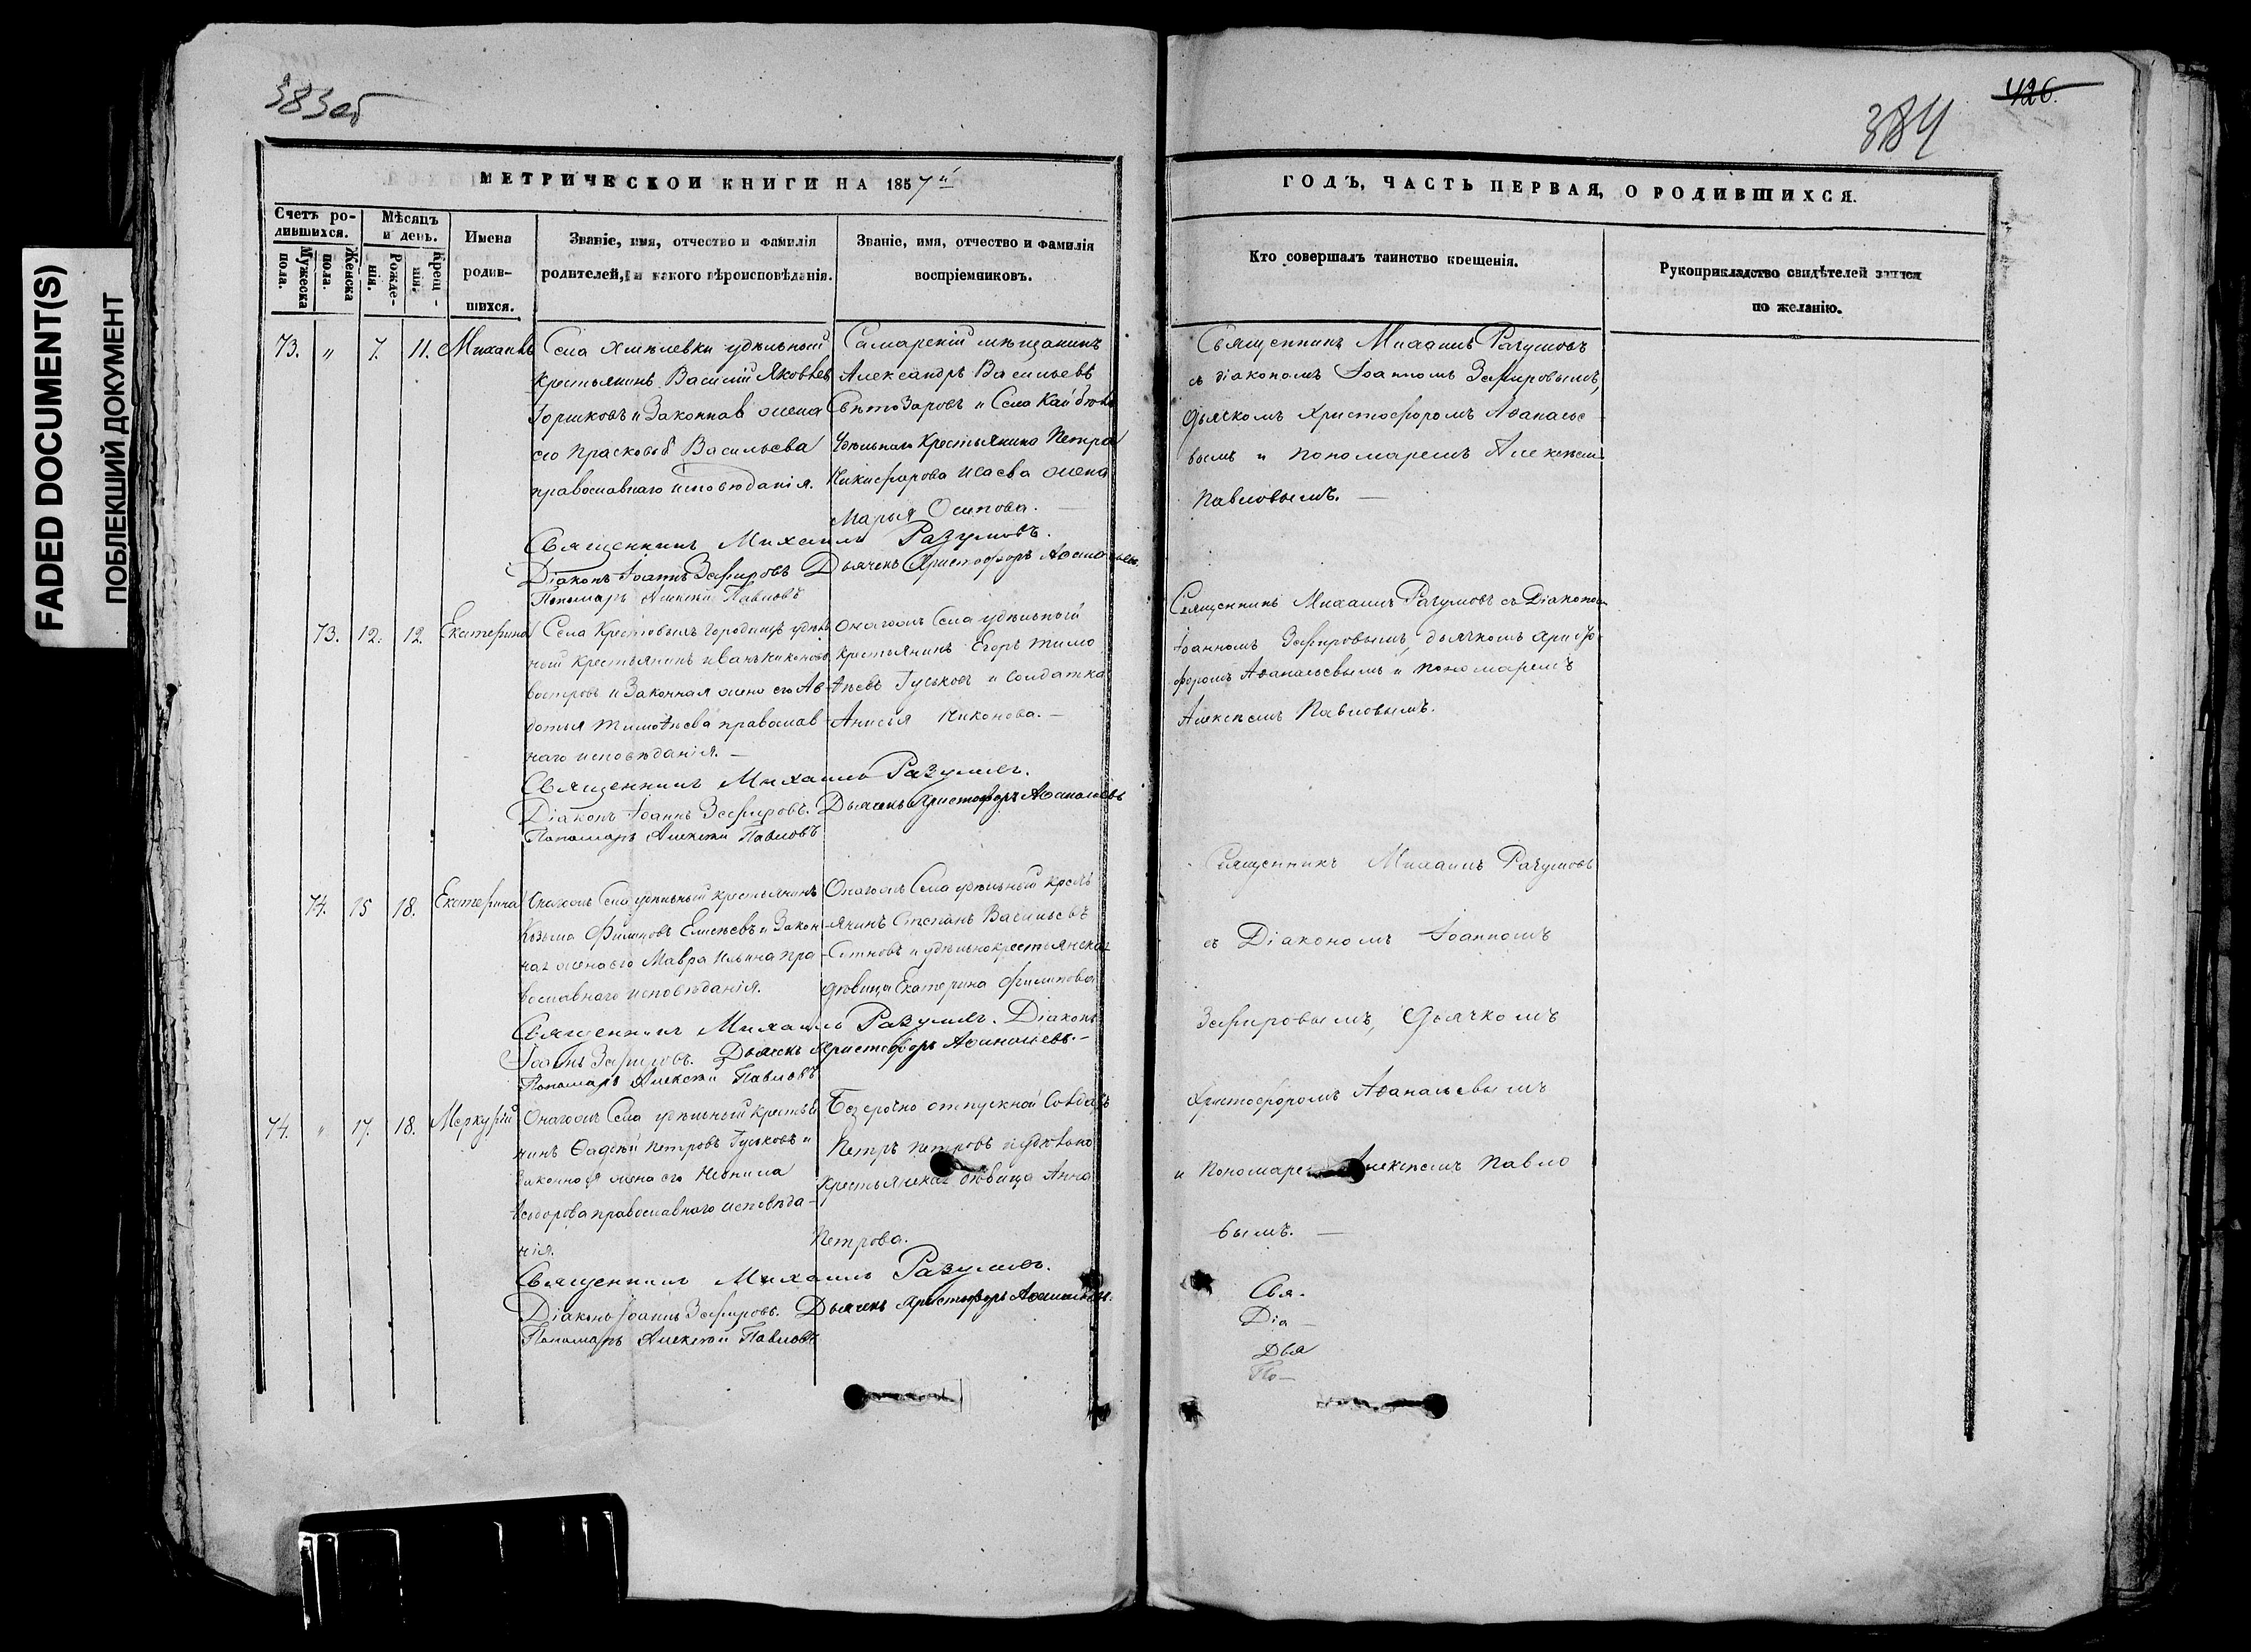 383об
426.
384
FADED DOCUMENT(S)
ПОБЛЕКШИЙ ДОКУМЕНТ
МЕТРИЧЕСКОИ КНИГИ НА 1857й
Счетъ ро-
дившихся.
Мужеска
пола.
Женска
пола.
Мѣсяцъ
и день.
Рожде-
нія.
Крещ-
нія.
Имена
родив-
шихся.
Званіе, имя, отчество и фамилія
родителей, и какого вѣроисповѣданія.
Званіе, имя, отчество и фамилія
воспріемниковъ.
73. " 7. 11. Михаилъ
Села Хмѣлевки удѣльный
крестьянинъ Василій Яковлев
Горшковъ и Законная жена
его Прасковья Васильева
православнаго исповѣданія.
Самарскій мѣщанинъ
Александръ Васильевъ
Свѣтозаровъ и Села
Удѣльнаго Крестьянина Петра
Никифорова Исаева жена
Марья Осипова.
Священникъ Михаилъ Разумовъ.
Діаконъ Іоаннъ Зефировъ Дьячекъ Христофоръ Аѳанасьевъ
Пономарь Алексѣй Павловъ
73. 12. 12. Екатерина
Села Крестовыхъ Городищъ удѣль
ный крестьянинъ Иванъ Никоновъ
Востровъ и Законная жена его Ав
дотья Тимоѳѣева православ
наго исповѣданія.
Онагожъ Села удѣльный
крестьянинъ Егоръ Тимо
ѳѣевъ Гуськовъ и Солдатка
Анисья Никонова.
Священникъ Михаилъ Разумовъ.
Діаконъ Іоаннъ Зефировъ. Дьячекъ Христофоръ Аѳанасьевъ
Пономарь Алексѣй Павловъ
74. 15 18. Екатерина
Онагожъ Села удѣльный крестьянинъ
Козьма Филиповъ Елисѣевъ и Закон
ная жена его Мавра Ильина пра
вославнаго исповѣданія.
Онагожъ Села удѣльный кресть
янинъ Степанъ Васильевъ
и удѣльнокрестьянская
дѣвица Екатерина Филипова
Священникъ Михаилъ Разумовъ. Діаконъ
Іоаннъ Зефировъ. Дьячекъ Христофоръ Аѳанасьевъ.
Пономарь Алексѣй Павловъ
74. " 17. 18. Меркурій
Онагожъ Села удѣльный крестья
нинъ Ѳадѣй Петровъ Гуськовъ и
Законная жена его Неонила
православнаго исповѣда-
нія.
Безсрочно отпускной Солдатъ
Петръ Петровъ и удѣльно
крестьянская дѣвица Анна
Петрова.
Священникъ Михаилъ Разумовъ.
Діаконъ Іоаннъ Зефировъ. Дьячекъ Христофоръ Аѳанасьевъ.
Пономарь Алексѣй Павловъ
ГОДЪ, ЧАСТЬ ПЕРВАЯ, О РОДИВШИХСЯ.
Кто совершалъ таинство крещенія.
Рукоприкладство свидѣтелей записи
по желанію.
Священникъ Михаилъ Разумовъ
съ діакономъ Іоанномъ Зефировымъ,
дьячкомъ Христофоромъ Аѳанасье
вымъ и пономаремъ Алексѣемъ
Павловымъ.
Священникъ Михаилъ Разумовъ съ Діакономъ
Іоанномъ Зефировымъ, дьячкомъ Христо
форомъ Аѳанасьевымъ и пономаремъ
Алексѣемъ Павловымъ.
Священникъ Михаилъ Разумовъ
съ Діакономъ Іоанномъ
Зефировымъ, дьячкомъ
Христофоромъ Аѳанасьевымъ
и Пономаремъ Алексѣемъ Павло
вымъ.
Свя.
Діа
Дья
По